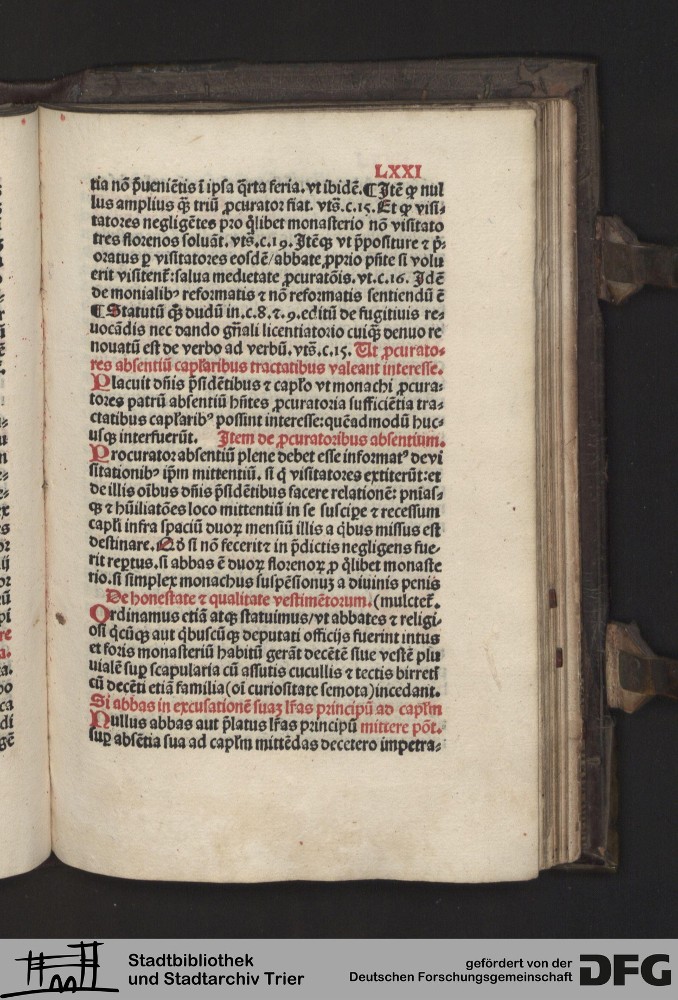 LXXI
tia nō p̄ueniētis ī ipsa q̄rta feria. vt ibidē. ¶ Itē ꝙ nul
lus amplius q̄ꝫ triū ꝓcurator fiat. vts̄.c.15. Et ꝙ visi⸗
tatores negligētes pro q̄libet monasterio nō visitato
tres florenos soluāt. vts̄.c.19. Itēqꝫ vt p̄positure ⁊ p̄⸗
oratus ꝑ visitatores eosdē/abbate ꝓprio p̄site si voiu
erit visitenẽ: salua medietate ꝓcuratōis. vt.c.16. Idē
de monialibꝰ reformatis ⁊ nō reformatis sentiendū ē
¶ Statutū q̄ꝫ dudū in.c.8.⁊.9.editū de fugitiuis re⸗
uocādis nec dando gn̄ali licentiatorio cuiqꝫ denuo re
nouatū est de verbo ad verbū. vts̄.c.15. Ut ꝓcurato⸗
res absentiū capl̄aribus tractatibus valeant interesse.
Placuit dn̄is p̄sidētibus ⁊ capl̄o vt monachi ꝓcura⸗
tores patrū absentiū hn̄tes ꝓcuratoria sufficiētia tra⸗
ctatibus capl̄aribꝰ possint interesse: quēadmodū huc⸗
usqꝫ interfuerūt. Item de ꝓcuratoribus absentium.
Procurator absentiū plene debet esse informatꝰ de vi
sitationibꝰ ip̄m mittentiū. si q̄ visitatores extiterūt: et
de illis oībus dn̄is p̄sidētibus facere relationē: pn̄ias⸗
qꝫ ⁊ hūiliatōes loco mittentiū in se suscipe ⁊ recessum
capl̄i infra spaciū duoꝝ mensiū illis a q̄bus missus est
destinare. Qđ si nō fecerit ⁊ in p̄dictis negligens fue⸗
rit reptus. si abbas ē duoꝝ florenoꝝ ꝓ q̄libet monaste
rio. si simplex monachus suspēsionuꝫ a diuinis penis
De honestate ⁊ qualitate vestimētorum. (mulctet̄.
Ordinamus etiā atqꝫ statuimus/vt abbates ⁊ religi⸗
osi q̄cūqꝫ aut q̄buscūqꝫ deputati officijs fuerint intus
et foris monasteriū habitū gerāt decētē siue vestē plu
uialē suꝑ scapularia cū assutis cucullis ⁊ tectis birretꝭ
cū decēti etiā familia (oī curiositate semota) incedant.
Si abbas in excusationē suaꝫ lr̄as principū ad capl̄m
Nullus abbas aut p̄latus lr̄as principū mittere pōt.
suꝑ absētia sua ad capl̄m mittēdas decetero impetra⸗
Stadtbibliothek
und Stadtarchiv Trier
gefördert von der
Deutschen Forschungsgemeinschaft
DFG